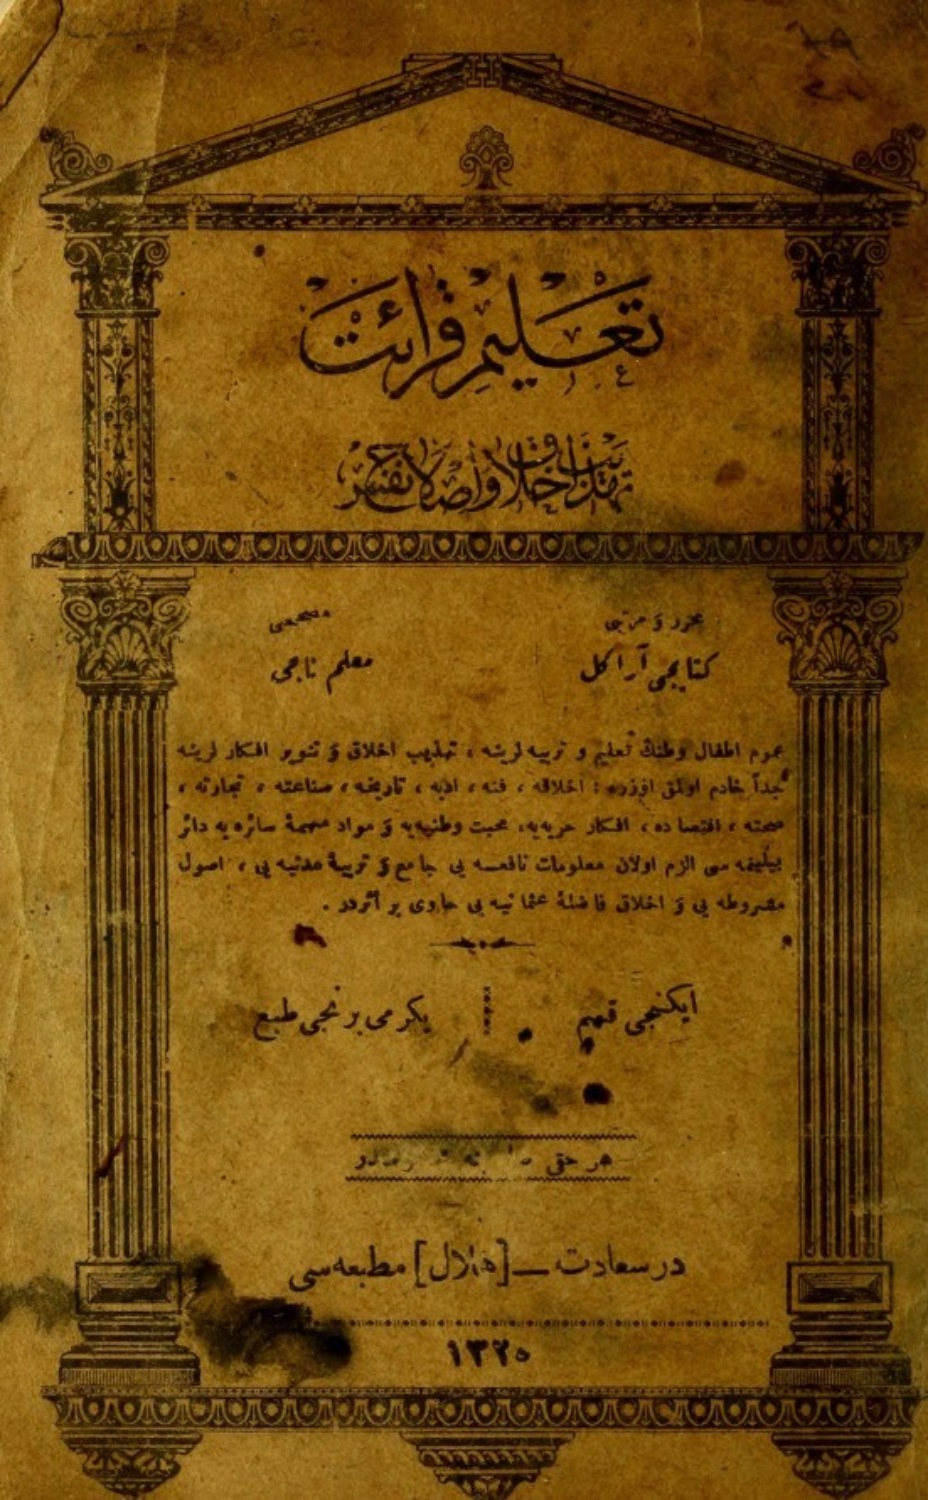 تعليم قرائت
تهذيب اخلاق و اصلاح نفس
محرر و مرتبی
مصححی
كتابجی آراكل
معلم ناجی
عموم اطفال وطنك تعليم و تربيه لرينه ، تهذيب اخلاق و تنوير افكار لرينه
جداً خادم اولمق اوزره : اخلاقه ، فنه ، ادبه ، تاريخه ، صناعته ، تجارته ،
صحته ، اقتصاده ، افكار حربيه يه ، محبت وطنيه يه و مواد مهمۀ سائره يه دائر
بيلينمه سی الزم اولان معلومات نافعه يی جامع و تربيۀ مدنيه يی ، اصول
مشروطه يی و اخلاق فاضلۀ عثمانيه يی حاوی بر اثردر .
ايكنجی قسم
يكرمی برنجی طبع
هر حقی
درسعادت — [هلال] مطبعه سی
۱۳۲۵